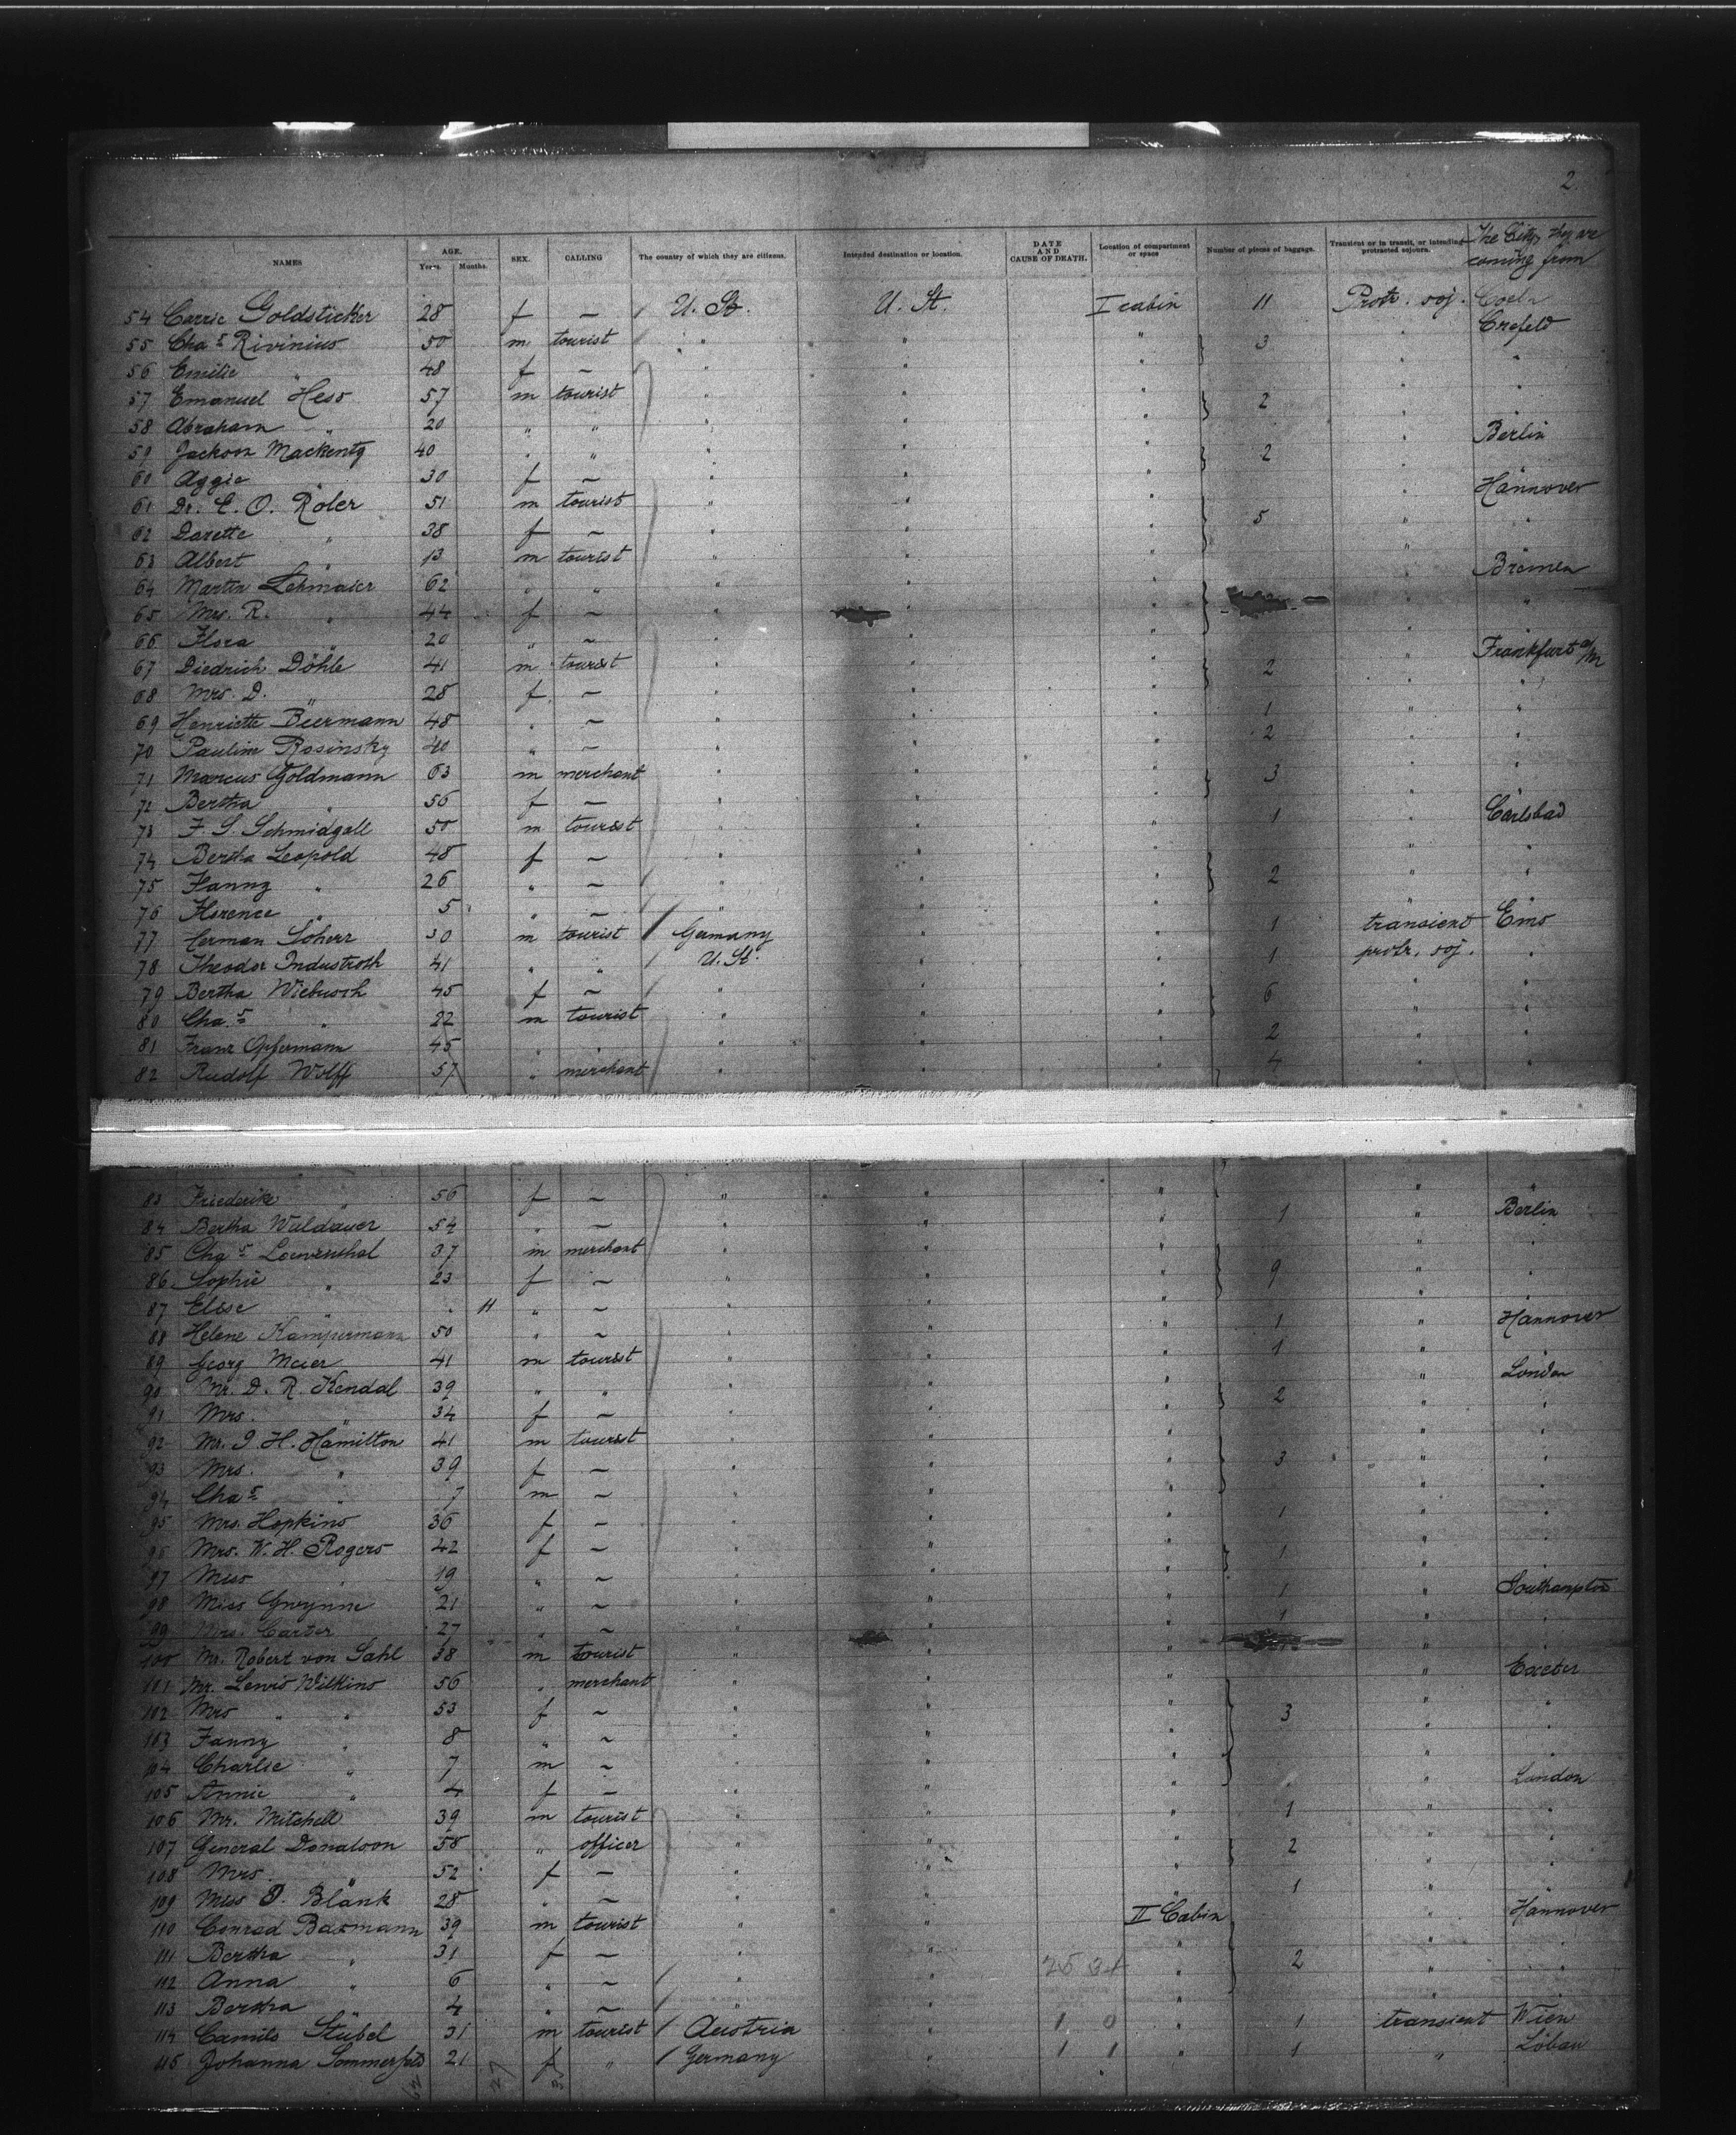 2
NAMES AGE. Years. Months. SEX. CALLING The country of which they are citizens. Intended destination or location. DATE AND CAUSE OF DEATH. Location of compartment or space Number of pieces of baggage. Transient or in transit, or intending protracted sojourn. The City they are coming from
54 Carrie Goldsticker 28 f — U. St. U. St. I cabin 11 Protr. soj. Coeln
55 Chas Rivinius 50 m tourist " " " 3 " Crefeld
56 Emilie " 48 f — " " " " "
57 Emanuel Hess 57 m tourist " " " 2 " "
58 Abraham " 20 " " " " " " "
59 Jackson Mackentz 40 " " " " " 2 " Berlin
60 Aggie " 30 f — " " " "
61 Dr. E. O. Roler 51 m tourist " " " 5 " Hannover
62 Dorette " 38 f — " " " " "
63 Albert " 13 m tourist " " " "
64 Martin Lehmaier 62 " " " " " " Bremen
65 Mrs. R. " 44 f — " " " " "
66 Flora " 20 " — " " " " "
67 Diedrich Döhle 41 m tourist " " " 2 " Frankfurt a/M
68 Mrs. D. " 28 f — " " " " "
69 Henriette Biermann 48 " — " " " 1 " "
70 Pauline Rosinsky 40 " — " " " 2 " "
71 Marcus Goldmann 63 m merchant " " " 3 " "
72 Bertha " 56 f — " " " " "
73 F. S. Schmidgall 50 m tourist " " " 1 " Carlsbad
74 Bertha Leopold 48 f — " " " " "
75 Fanny " 26 " — " " " 2 " "
76 Florence " 5 " — " " " " "
77 Herman Soherr 30 m tourist Germany " " 1 transient Ems
78 Theodor Industroth 41 " " U. St. " " 1 protr. soj. "
79 Bertha Wiebusch 45 f — " " " 6 " "
80 Chas " 22 m tourist " " " " "
81 Franz Opfermann 45 " " " " " 2 " "
82 Rudolf Wolff 57 " merchant " " " 4 " "
83 Friederike " 56 f — " " " " "
84 Bertha Waldauer 54 " — " " " 1 " Berlin
85 Chas Loewenthal 37 m merchant " " " " "
86 Sophie " 23 f — " " " 9 " "
87 Elise " " 11 " — " " " " "
88 Helene Kampermann 50 " — " " " 1 " Hannover
89 Georg Meier 41 m tourist " " " 1 "
90 Mr. D. R. Kendal 39 " " " " " 2 " London
91 Mrs. " 34 f — " " " " "
92 Mr. I. H. Hamilton 41 m tourist " " " " "
93 Mrs. " 39 f — " " " 3 " "
94 Chas " 7 m — " " " " "
95 Mrs. Hopkins 36 f — " " " 1 " "
96 Mrs. W. H. Rogers 42 f — " " " 1 " "
97 Miss " 19 " — " " " " "
98 Miss Gwynne 21 " — " " " 1 " Southampton
99 Mrs. Carter 27 " — " " " 1 " "
100 Mr. Robert von Sahl 38 m tourist " " " " "
111 Mr. Lewis Wilkins 56 " merchant " " " " Exeter
102 Mrs " " 53 f — " " " 3 " "
103 Fanny " 8 " — " " " " "
104 Charlie " 7 m — " " " " "
105 Annie " 4 f — " " " " London
106 Mr. Mitchell 39 m tourist " " " 1 " "
107 General Donalson 58 " officer " " " 2 " "
108 Mrs. " 52 f — " " " " "
109 Miss P. Blank 28 " — " " " 1 " "
110 Conrad Baxmann 39 m tourist " " II Cabin " Hannover
111 Bertha " 31 f — " " " 2 " "
112 Anna " 6 " — " " " " "
113 Bertha " 4 " — " " " " "
114 Camilo Stübel 31 m tourist Austria " 1 0 " 1 transient Wien
115 Johanna Sommerfeld 21 f " Germany " 1 1 " 1 " Löbau